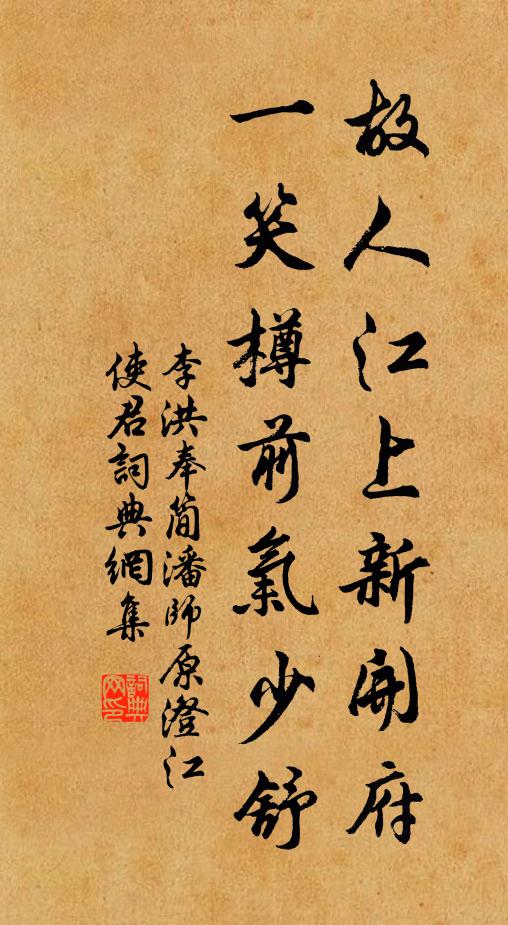 故人江上新開府
一笑樽前氣少舒
李洪奉简潘師原澄江
使君詞典網集
詞典網印